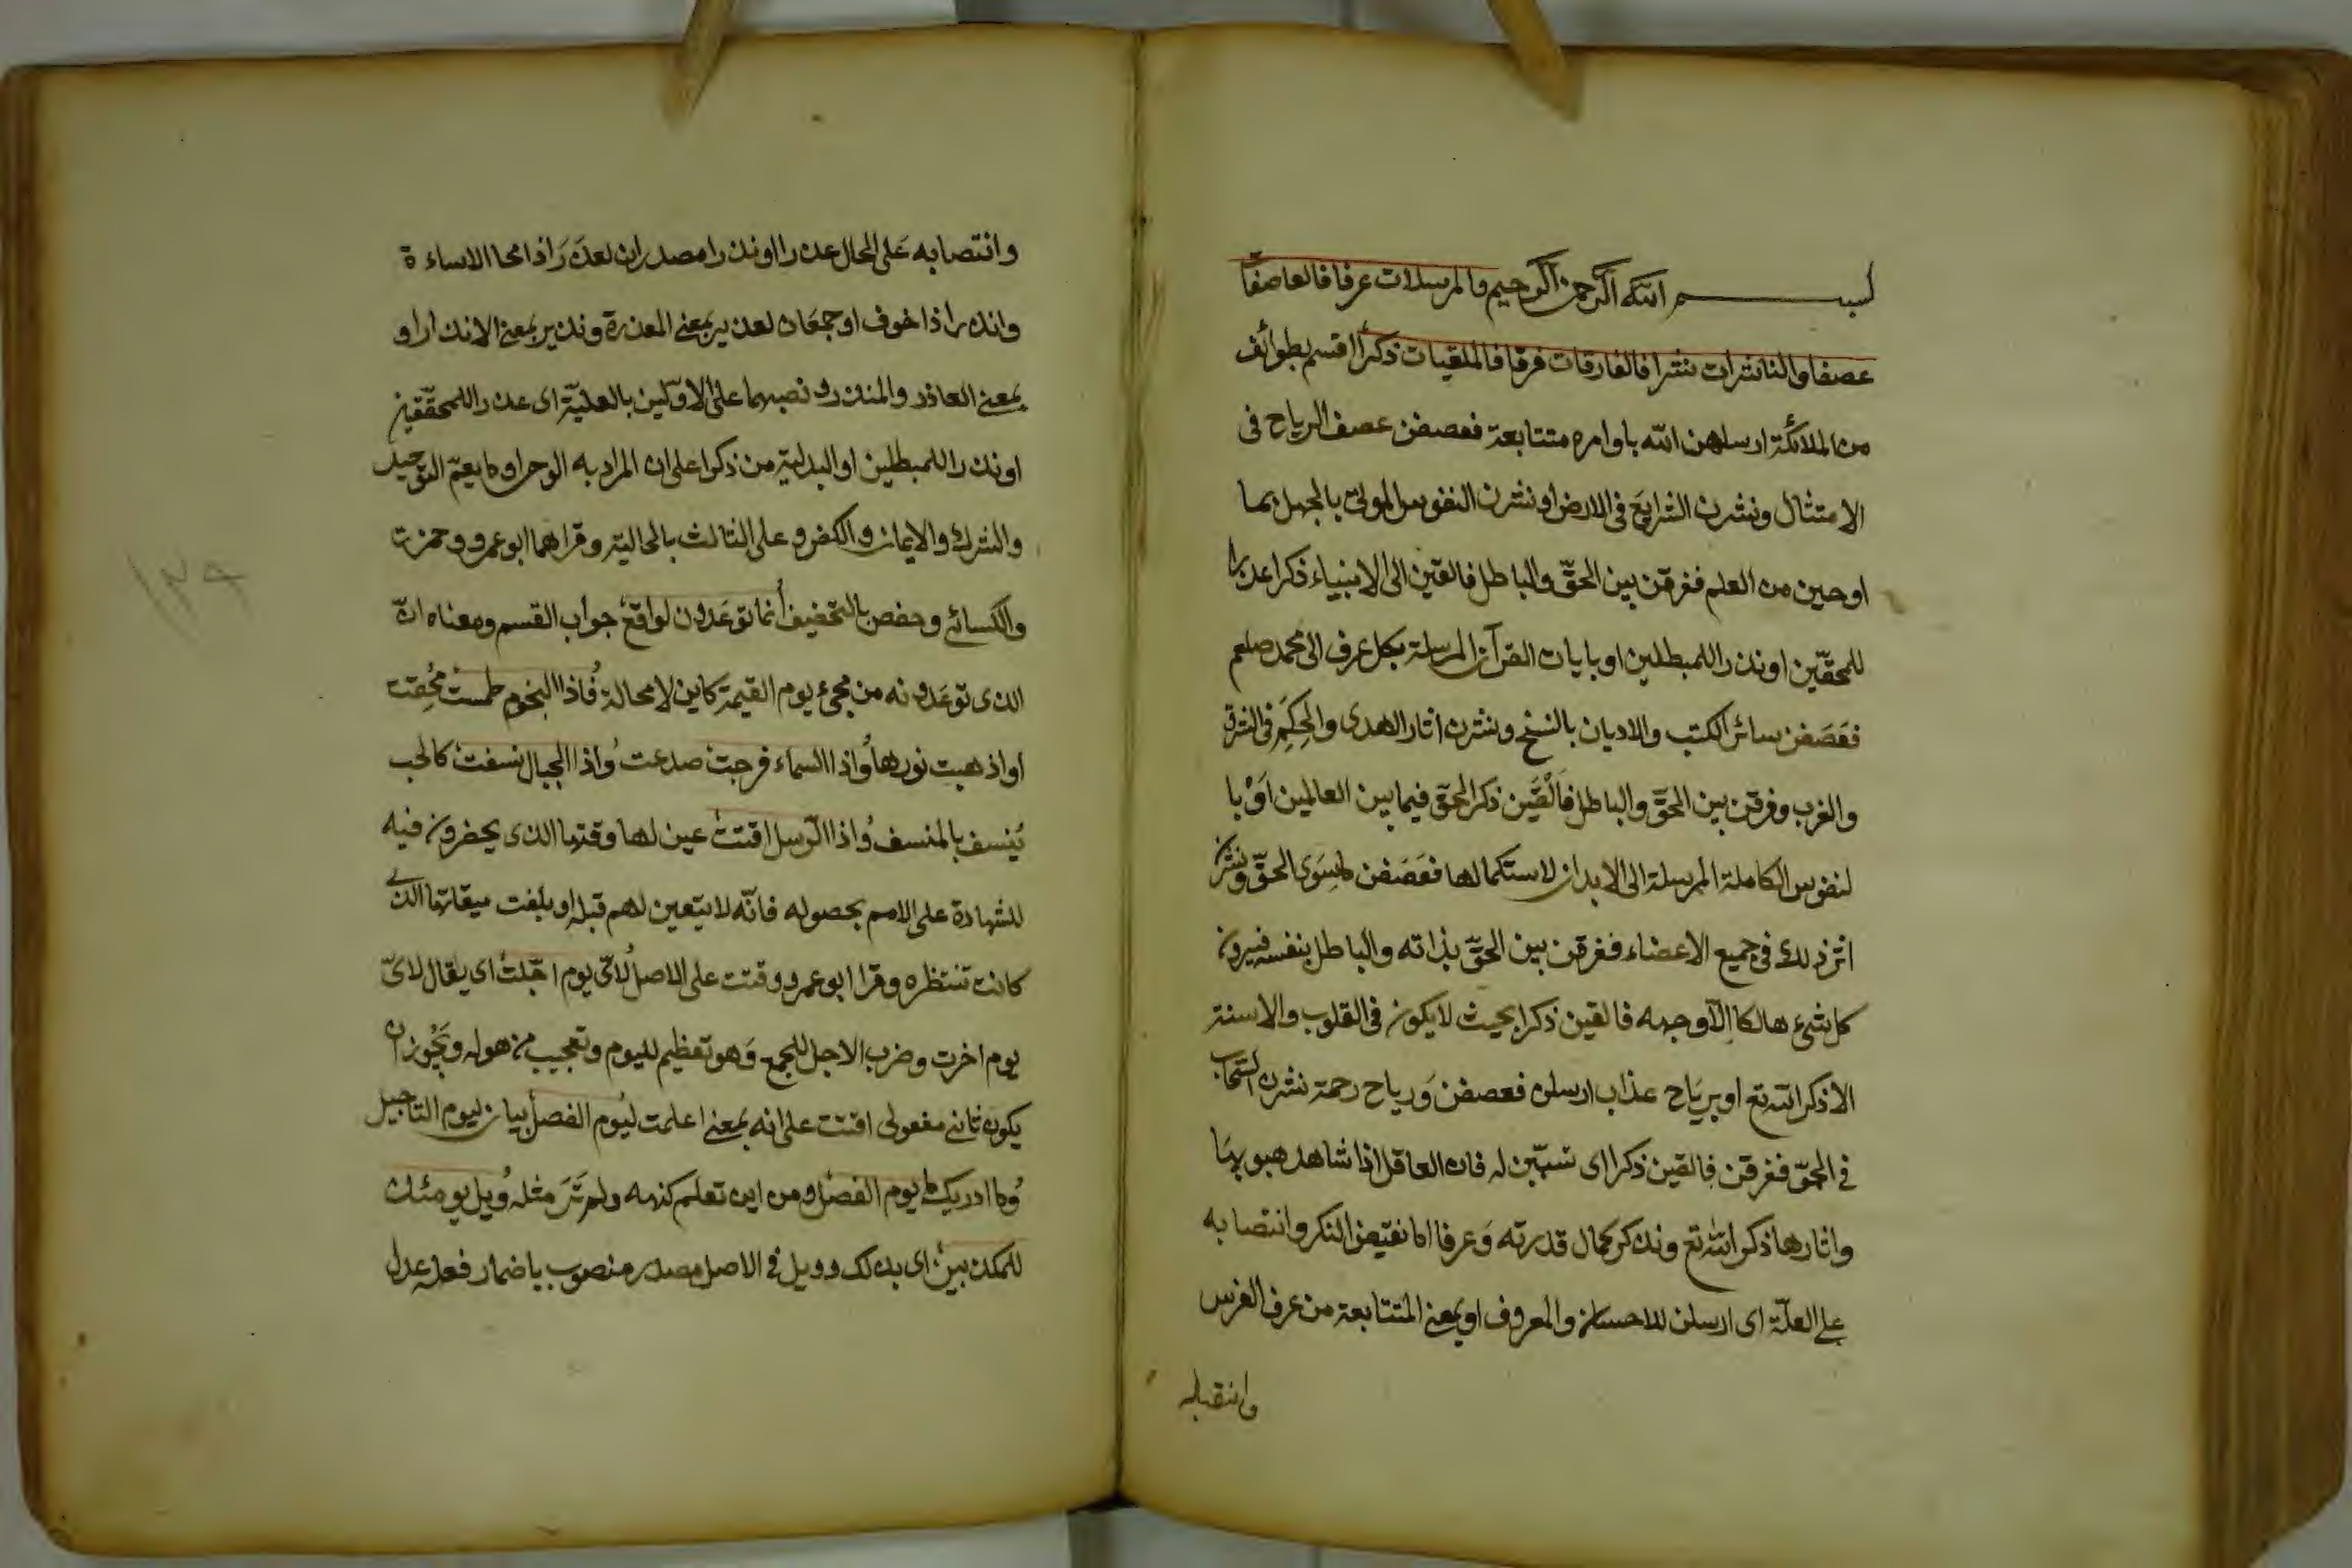 بسم الله الرحمن الرحيم والمرسلات عرفا فالعاصفات
عصفا والناشرات نشرا فالفارقات فرقا فالملقيات ذكرا اقسم بطوائف
من الملائكة ارسلهن الله باوامره متتابعة فعصفن عصف الرياح فى
الامتثال ونشرن الشرايع فى الارض او نشرن النفوس الموتى بالجهل بما
اوحين من العلم ففرقن بين الحق والباطل فالقين الى الانبياء ذكرا عذرا
للمحقين او نذرا للمبطلين او بايات القرآن المرسلة بكل عرف الى محمد صلعم
فعَصَفن سائر الكتب والاديان بالنسخ ونشرن اثار الهدى والحِكَمِ فى الشرق
والغرب وفرقن بين الحق والباطل فاَلْقَين ذكر الحق فيما بين العالمين اَوْ با
لنفوس الكاملة المرسلة الى الابدان لاستكمالها فعَصَفن ما سِوَى الحق ونشرن
اثر ذلك فى جميع الاعضاء ففرقن بين الحق بذاته والباطل بنفسه فيرون
كل شىء هالكا الا وجهه فالقين ذكرا بحيث لا يكون فى القلوب والالسنة
الا ذكر الله تع او برياح عذاب ارسلن فعصفن وَرياح رحمة نشرن السحاب
فى الجوّ ففرقن فالقين ذكرا اى تسبّبن له فان العاقل اذا شاهد هبوبها
واثارها ذكر الله تع وتذكر كمال قدرته وَعرفا اما نقيض النكر وانتصابه
على العلّة اى ارسلن للاحسان والمعروف او بمعنى المتتابعة من عرف الفرس
وانتصابه
وانتصابه عَلى الحال عذرا او نذرا مصدران لعذَرَ اذا محا الاساءة
وانذر اذا خوف او جمعان لعذير بمعنى المعذرة ونذير بمعنى الانذار او
بمعنى العاذر والمنذر ونصبهما على الاوّلين بالعليّة اى عذرا للمحقّقين
او نذرا للمبطلين او البدلية من ذكرا على ان المراد به الوحى او ما يعمّ التوحيد
والشرك والايمان والكفر وعلى الثالث بالحالية وقراهما ابو عمرو وحمزة
والكسائى وحفص بالتخفيف انما توعَدون لواقع جواب القسم ومعناه انّ
الذى توعَدونه من مجىء يوم القيمة كاين لا محالة فاذا النجوم طمست مُحِقت
او اذهبت نورها واذا السماء فرجت صدعت واذا الجبال نسفت كالحب
يُنسف بالمنسف واذا الرّسل اقتت عين لها وقتها الذى يحضرون فيه
للشهادة على الامم بحصوله فانّه لا يتعين لهم قبله او بلغت ميقاتها الذى
كانت تنتظره وقرا ابو عمرو وقتت على الاصل لاىّ يوم اجّلت اى يقال لاىّ
يوم اخرت وضرب الاجل للجمع وَهو تعظيم لليوم وتعجيب من هوله ويَجُوز ان
يكون ثانى مفعولى اقتت على انه بمعنى اعلمت ليوم الفصل بيان ليوم التاجيل
وما ادريك ما يوم الفصل ومن اين تعلم كنهه ولم تَرَ مثله ويل يومئذ
للمكذبين اى بذلك وويل فى الاصل مصدر منصوب باضمار فعله عدل